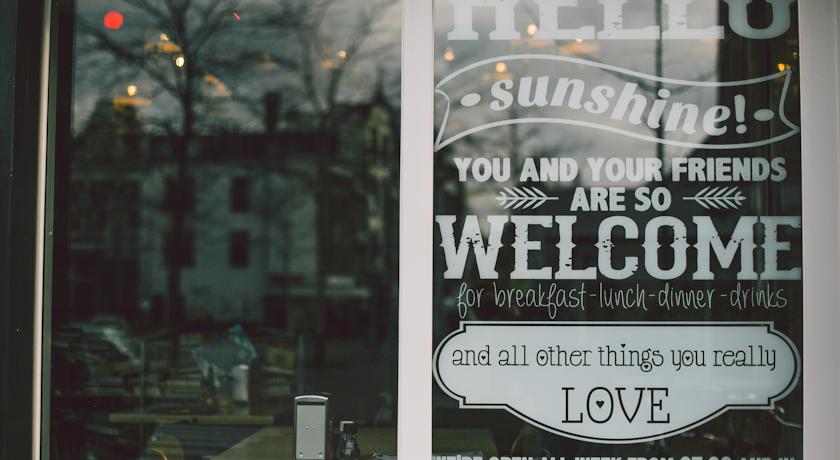 HELLO
sunshine!
YOU AND YOUR FRIENDS
ARE SO
WELCOME
for breakfast-lunch-dinner-drinks
and all other things you really
LOVE
WE'RE OPEN ALL WEEK FROM